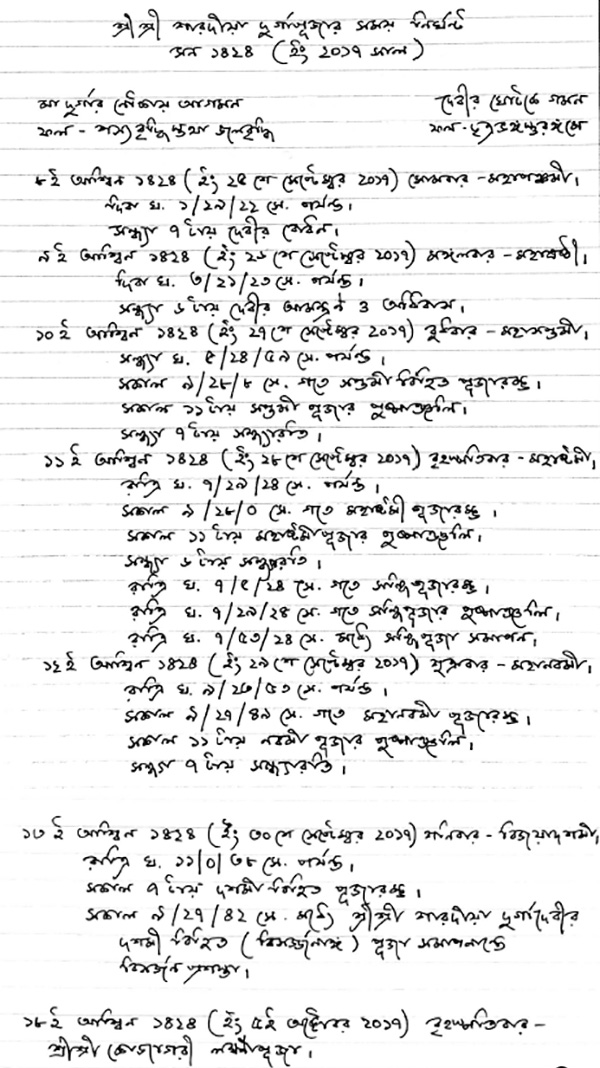 শ্রী শ্রী শারদীয়া দুর্গাপূজার সময় নির্ঘন্ট
সন ১৪২৪ (ইং ২০১৭ সাল)
মা দুর্গার নৌকায় আগমন
ফল - শস্যবৃদ্ধিস্তথা জলবৃদ্ধি
দেবীর ঘোটকে গমন
ফল - ছত্রভঙ্গস্তুরঙ্গমে
৮ই আশ্বিন ১৪২৪ (ইং ২৫শে সেপ্টেম্বর ২০১৭) সোমবার - মহাপঞ্চমী।
দিবা ঘ. ১/২৯/২২ সে. পর্যন্ত।
সন্ধ্যা ৭টায় দেবীর বোধন।
৯ই আশ্বিন ১৪২৪ (ইং ২৬শে সেপ্টেম্বর ২০১৭) মঙ্গলবার - মহাষষ্ঠী।
দিবা ঘ. ৩/২১/২৩ সে. পর্যন্ত।
সন্ধ্যা ৬টায় দেবীর আমন্ত্রণ ও অধিবাস।
১০ই আশ্বিন ১৪২৪ (ইং ২৭শে সেপ্টেম্বর ২০১৭) বুধবার - মহাসপ্তমী।
সন্ধ্যা ঘ. ৫/২৪/৫৯ সে. পর্যন্ত।
সকাল ৯/২৮/৮ সে. গতে সপ্তমী বিহিত পূজারম্ভ।
সকাল ১১টায় সপ্তমী পূজার পুষ্পাঞ্জলি।
সন্ধ্যা ৭টায় সন্ধ্যারতি।
১১ই আশ্বিন ১৪২৪ (ইং ২৮শে সেপ্টেম্বর ২০১৭) বৃহস্পতিবার - মহাষ্টমী।
রাত্রি ঘ. ৭/২৯/২৪ সে. পর্যন্ত।
সকাল ৯/২৮/০ সে. গতে মহাষ্টমী পূজারম্ভ।
সকাল ১১টায় মহাষ্টমীপূজার পুষ্পাঞ্জলি।
সন্ধ্যা ৬টায় সন্ধ্যারতি।
রাত্রি ঘ. ৭/৫/২৪ সে. গতে সন্ধিপূজারম্ভ।
রাত্রি ঘ. ৭/২৯/২৪ সে. গতে সন্ধিপূজার পুষ্পাঞ্জলি।
রাত্রি ঘ. ৭/৫৩/২৪ সে. মধ্যে সন্ধিপূজা সমাপন।
১২ই আশ্বিন ১৪২৪ (ইং ২৯শে সেপ্টেম্বর ২০১৭) শুক্রবার - মহানবমী।
রাত্রি ঘ. পর্যন্ত।
সকাল ৯/২৭/৪৯ সে. গতে মহানবমী পূজারম্ভ।
সকাল ১১টায় নবমী পূজার পুষ্পাঞ্জলি।
সন্ধ্যা ৭টায় সন্ধ্যারতি।
১৩ই আশ্বিন ১৪২৪ (ইং ৩০শে সেপ্টেম্বর ২০১৭) শনিবার - বিজয়াদশমী।
রাত্রি ঘ. ১১/০/৩৮ সে. পর্যন্ত।
সকাল ৭টায় দশমী বিহিত পূজারম্ভ।
সকাল ৯/২৭/৪২ সে. মধ্যে শ্রীশ্রী শারদীয়া দুর্গাদেবীর
দশমী বিহিত (বিসর্জ্জনাঙ্গ) পূজা সমাপনান্তে
বিসর্জন প্রশস্তা।
১৮ই আশ্বিন ১৪২৪ (ইং ৫ই অক্টোবর ২০১৭) বৃহস্পতিবার -
শ্রীশ্রী কোজাগরী লক্ষ্মীপূজা।